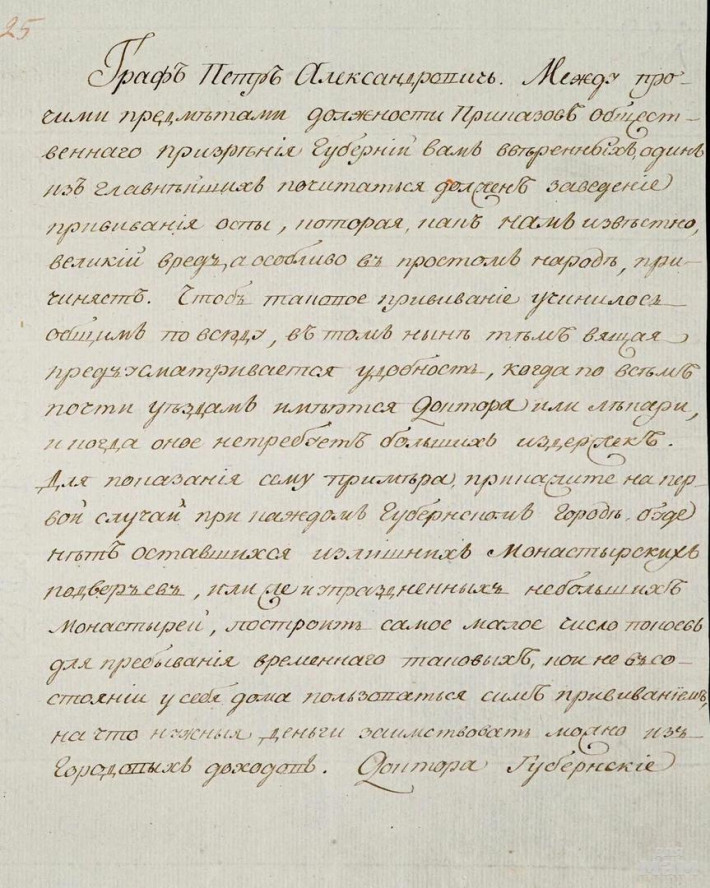 25
Графъ Петръ Александровичь. Между про-
чими предмѣтами должности Приказовъ общест-
веннаго призрѣнія Губерній вамъ ввѣренныхъ, одинъ
изъ главнѣйшихъ почитаться долженъ заведеніе
прививанія оспы, которая, какъ намъ извѣстно,
великій вредъ, а особливо въ простомъ народѣ, при-
чиняетъ. Чтобъ таковое прививаніе учинилось
общимъ повсюду, въ томъ нынѣ тѣмъ вящая
предъусматривается удобность, когда по всѣмъ
почти уѣздамъ имѣются Доктора или лѣкари,
и когда оное нетребуетъ большихъ издержекъ.
Для показанія сему примѣра, прикажите на пер-
вой случай при каждомъ Губернскомъ Городѣ, буде
нѣтъ оставшихся излишнихъ Монастырскихъ
подворьевъ, или же и упраздненныхъ небольшихъ
Монастырей, построить самое малое число покоевъ
для пребыванія временнаго таковыхъ, кои не въ со-
стояніи у себя дома пользоваться симъ прививаніемъ,
на что нужныя деньги заимствовать можно изъ
Городовыхъ доходовъ. Доктора Губернскіе